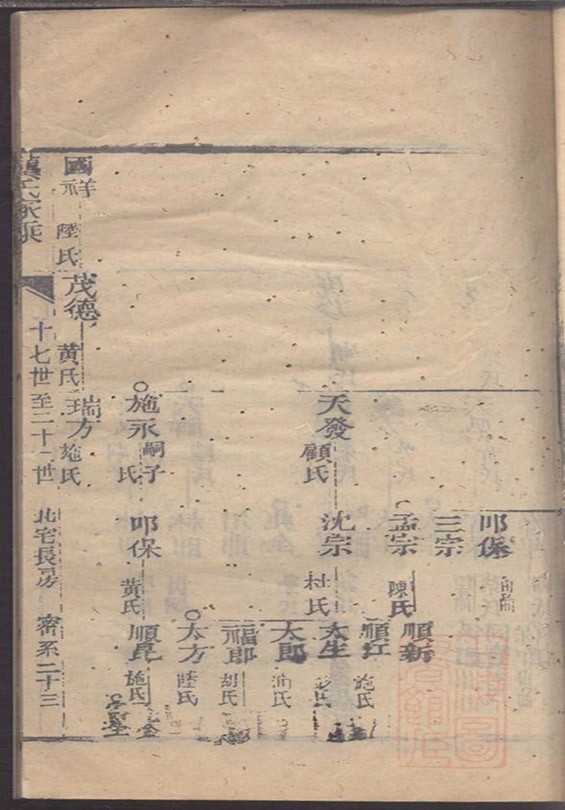 叩保
三宗
孟宗
陳氏
順新
順江
施氏
天發
顧氏
沈宗
杜氏
太生
太郎
福郎
胡氏
太方
陸氏
施氏
永嗣子
叩保
黄氏
順昆
施氏
國祥
陸氏
茂德
黄氏
瑞方
施氏
氏家乘
十七世至二十一世
北宅長房
密系二十三